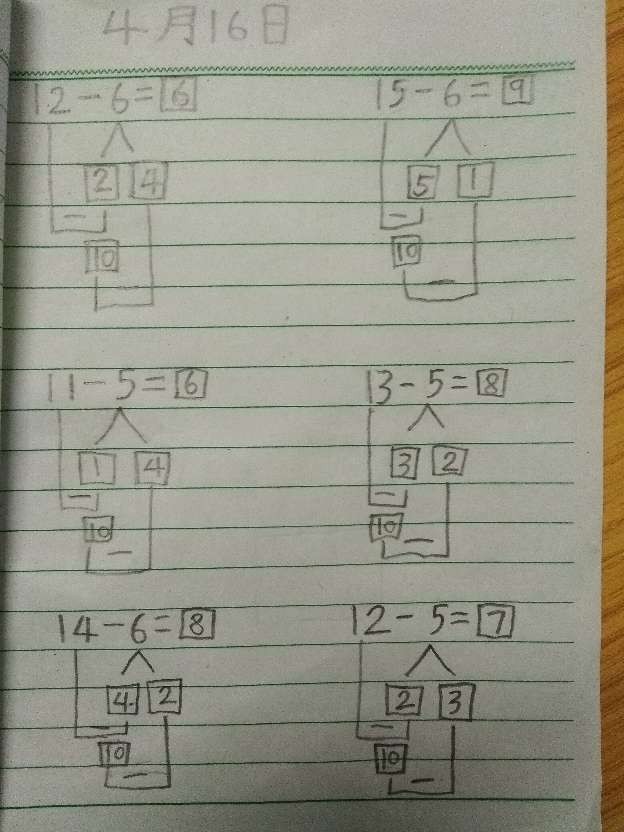 4月16日
12-6=6 15-6=9
2 4 5 1
- -
10 10
- -
11-5=6 13-5=8
1 4 3 2
- -
10 10
- -
14-6=8 12-5=7
4 2 2 3
- -
10 10
- -